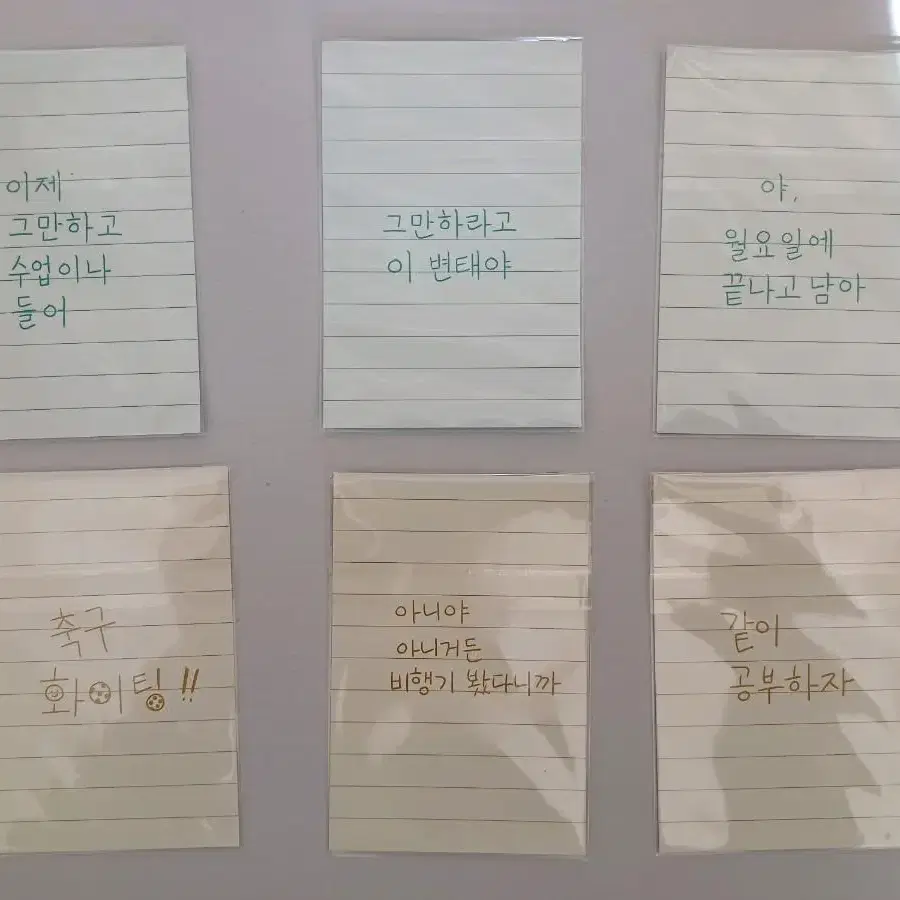 이제
그만하고
수업이나
들어
그만하라고
이 변태야
야,
월요일에
끝나고 남아
축구
화이팅!!
아니야
아니거든
비행기 봤다니까
같이
공부하자